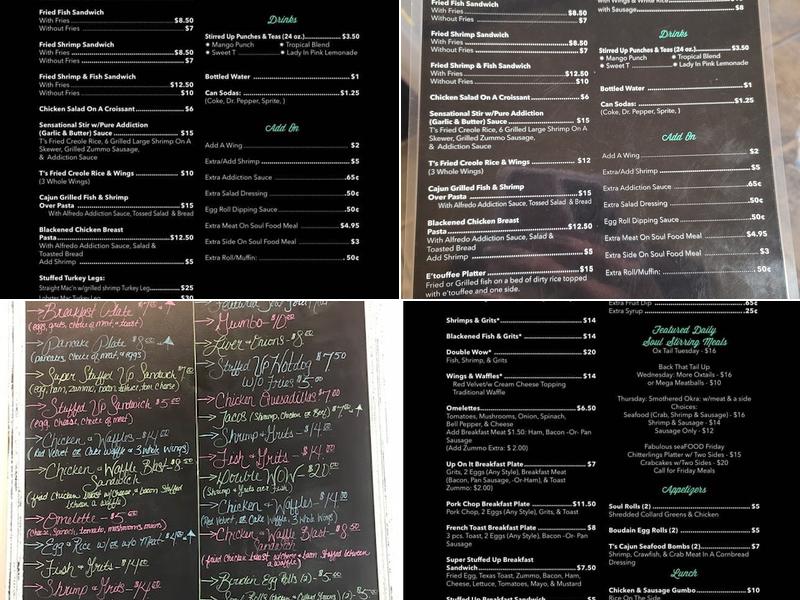 Fried Fish Sandwich
With Fries $8.50
Without Fries $7
Fried Shrimp Sandwich
With Fries $8.50
Without Fries $7
Fried Shrimp & Fish Sandwich
With Fries $12.50
Without Fries $10
Chicken Salad On A Croissant $6
Sensational Stir w/Pure Addiction
(Garlic & Butter) Sauce $15
T's Fried Creole Rice, 6 Grilled Large Shrimp On A
Skewer, Grilled Zummo Sausage,
& Addiction Sauce
T's Fried Creole Rice & Wings $10
(3 Whole Wings)
Cajun Grilled Fish & Shrimp
Over Pasta $15
With Alfredo Addiction Sauce, Tossed Salad & Bread
Blackened Chicken Breast
Pasta $12.50
With Alfredo Addiction Sauce, Salad &
Toasted Bread
Add Shrimp $5
Stuffed Turkey Legs:
Straight Mac'n w/grilled shrimp Turkey Leg $25
Lobster Mac Turkey Leg $30
Drinks
Stirred Up Punches & Teas (24 oz.) $3.50
* Mango Punch * Tropical Blend
* Sweet T * Lady In Pink Lemonade
Bottled Water $1
Can Sodas: $1.25
(Coke, Dr. Pepper, Sprite, )
Add On
Add A Wing $2
Extra/Add Shrimp $5
Extra Addiction Sauce .65¢
Extra Salad Dressing .50¢
Egg Roll Dipping Sauce .50¢
Extra Meat On Soul Food Meal $4.95
Extra Side On Soul Food Meal $3
Extra Roll/Muffin: .50¢
Fried Fish Sandwich
With Fries $8.50
Without Fries $7
Fried Shrimp Sandwich
With Fries $8.50
Without Fries $7
Fried Shrimp & Fish Sandwich
With Fries $12.50
Without Fries $10
Chicken Salad On A Croissant $6
Sensational Stir w/Pure Addiction
(Garlic & Butter) Sauce $15
T's Fried Creole Rice, 6 Grilled Large Shrimp On A
Skewer, Grilled Zummo Sausage,
& Addiction Sauce
T's Fried Creole Rice & Wings $12
(3 Whole Wings)
Cajun Grilled Fish & Shrimp
Over Pasta $15
With Alfredo Addiction Sauce, Tossed Salad & Bread
Blackened Chicken Breast
Pasta $12.50
With Alfredo Addiction Sauce, Salad &
Toasted Bread
Add Shrimp $5
E'touffee Platter $15
Fried or Grilled fish on a bed of dirty rice topped
with e'touffee and one side.
with Wings & White Rice
with Sausage $8
Drinks
Stirred Up Punches & Teas (24 oz.) $3.50
* Mango Punch * Tropical Blend
* Sweet T * Lady In Pink Lemonade
Bottled Water $1
Can Sodas: $1.25
(Coke, Dr. Pepper, Sprite, )
Add On
Add A Wing $2
Extra/Add Shrimp $5
Extra Addiction Sauce .65¢
Extra Salad Dressing .50¢
Egg Roll Dipping Sauce .50¢
Extra Meat On Soul Food Meal $4.95
Extra Side On Soul Food Meal $3
Extra Roll/Muffin: .50¢
Breakfast Plate
(eggs, grits, choice of meat, + toast)
Pancake Plate $8.00
(pancakes, choice of meat, + eggs)
Super Stuffed Up Sandwich
Stuffed Up Sandwich $5.00
(egg, cheese, choice of meat)
Chicken + Waffles - $14.00
(Red Velvet or Cake waffle + 3 whole Wings)
Chicken + Waffle Blast - $8.50
Sandwich
Omelette - $5.00
(Cheese, Spinach, tomato, mushrooms, onion)
Egg + Rice w/ or w/o Meat - $4.00
Fish + Grits - $14.00
Shrimp + Grits - $14.00
Gumbo - $10.00
Liver + Onions - $8.00
Stuffed Up Hotdog $7.50
w/o Fries $5.00
Chicken Quesadillas $7.00
Tacos (Shrimp, Chicken or Beef) $7
Shrimp + Grits - $14.00
Fish + Grits - $14.00
Double WOW - $20.00
(Shrimp + Grits and Fish)
Chicken + Waffles - $14.00
(Red Velvet or Cake Waffle, 3 Whole Wings)
Chicken Waffle Blast - $8.50
Sandwich
Boudin Egg Rolls (2) - $5.00
Shrimps & Grits* $14
Blackened Fish & Grits* $14
Double Wow* $20
Fish, Shrimp, & Grits
Wings & Waffles* $14
Red Velvet/w Cream Cheese Topping
Traditional Waffle
Omelettes $6.50
Tomatoes, Mushrooms, Onion, Spinach,
Bell Pepper, & Cheese
Add Breakfast Meat $1.50: Ham, Bacon -Or- Pan
Sausage
(Add Zummo Extra: $ 2.00)
Up On It Breakfast Plate $7
Grits, 2 Eggs (Any Style), Breakfast Meat
(Bacon, Pan Sausage, -Or-Ham), & Toast
Zummo: $2.00)
Pork Chop Breakfast Plate $11.50
Pork Chop, 2 Eggs (Any Style), Grits, & Toast
French Toast Breakfast Plate $8
3 pcs. Toast, 2 Eggs (Any Style), Bacon -Or- Pan
Sausage
Super Stuffed Up Breakfast
Sandwich $7.50
Fried Egg, Texas Toast, Zummo, Bacon, Ham,
Cheese, Lettuce, Tomatoes, Mayo, & Mustard
Stuffed Up Breakfast Sandwich $5
Extra Fruit Dip .65¢
Extra Syrup .25¢
Featured Daily
Soul Stirring Meals
Ox Tail Tuesday - $16
Back That Tail Up
Wednesday: More Oxtails - $16
or Mega Meatballs - $10
Thursday: Smothered Okra: w/meat & a side
Choices:
Seafood (Crab, Shrimp & Sausage) - $16
Shrimp & Sausage - $14
Sausage Only - $12
Fabulous seaFOOD Friday
Chitterlings Platter w/ Two Sides - $15
Crabcakes w/Two Sides - $20
Call for Friday Meals
Appetizers
Soul Rolls (2) $5
Shredded Collard Greens & Chicken
Boudain Egg Rolls (2) $5
T's Cajun Seafood Bombs (2) $7
Shrimp, Crawfish, & Crab Meat In A Cornbread
Dressing
Lunch
Chicken & Sausage Gumbo $10
Rice On The Side